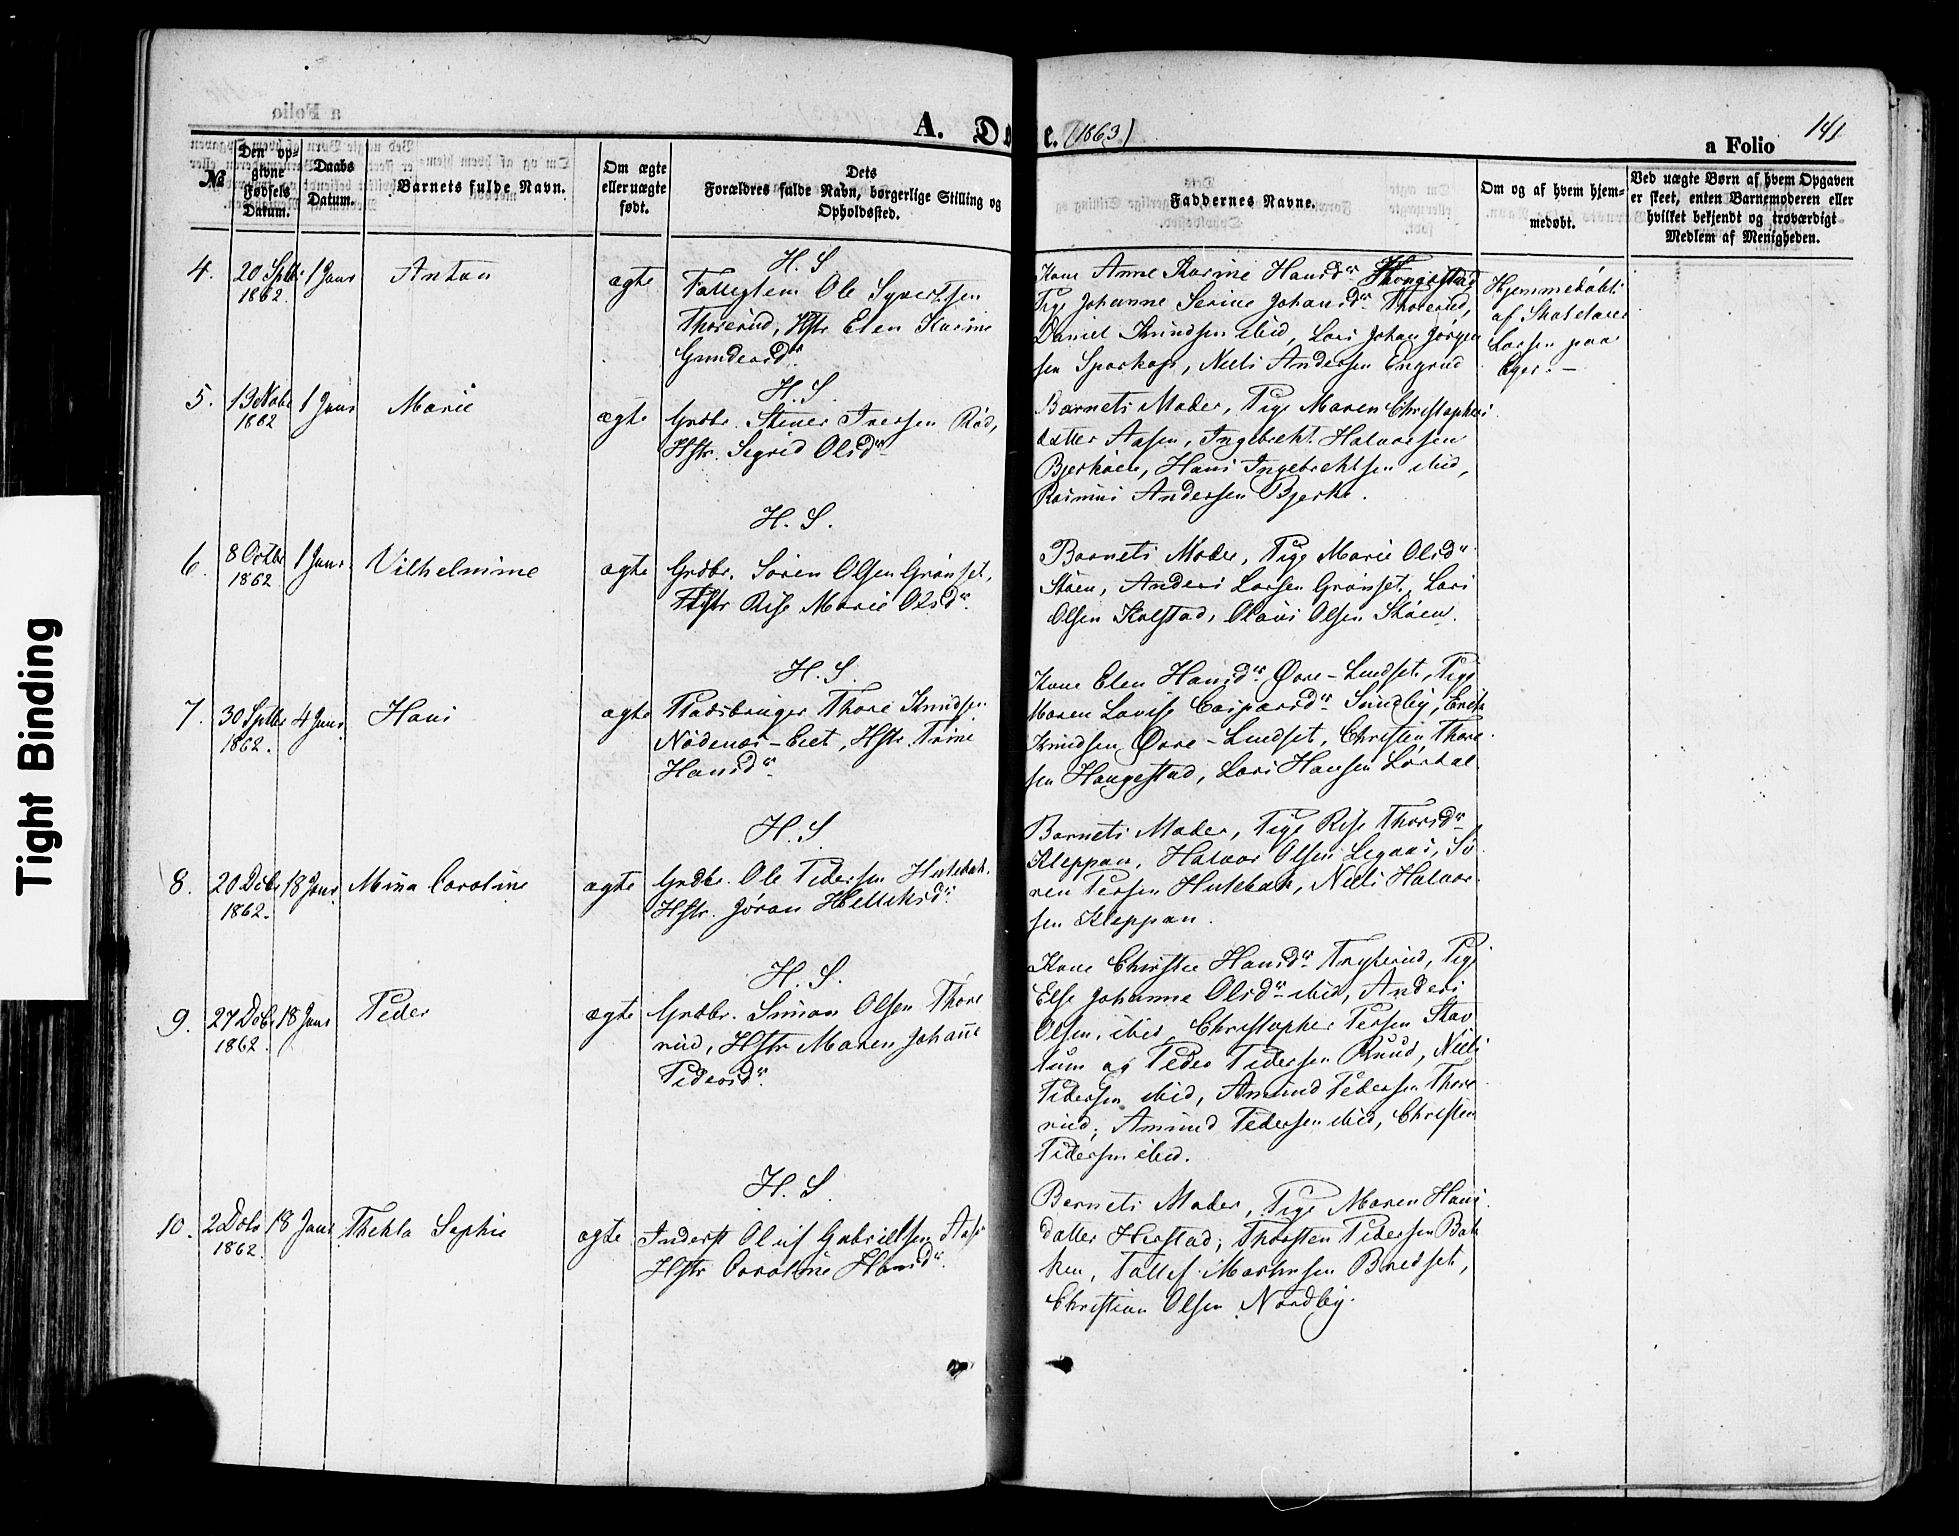 Tight Binding
a Folio
A. Dø e. (1863)
a Folio 141
№
Den op-
givne
Fødsels
Datum.
Daabs
Datum.
Barnets fulde Navn.
Om ægte
eller uægte
født.
Dets
Forældres fulde Navn, borgerlige Stilling og
Opholdssted.
Faddernes Navne.
Om og af hvem hjem-
medøbt.
Ved uægte Børn af hvem Opgaven
er skeet, enten Barnemoderen eller
hvilket bekjendt og troværdigt
Medlem af Menigheden.
H. S
4. 20 Sptbr 1 Janr Anton ægte
1862.
Ole Syvertsen
Thorerud, Hstr. Elen Karine
Gundersdr
Kone Anne Karine Hansdr
Pige Johanne Serine Johansdr Thorerud,
Daniel Knudsen ibid, Lars Johan Jørgen
sen, Niels Andersen Engrud
Hjemmedøbt
af Skolelærer
Larsen paa
Eger. –
H. S.
5. 13 Novbr 1 Janr Marie ægte
1862
Grdbr. Stener Iversen Rød,
Hstr. Sigrid Olsdr
Barnets Moder, Pige Maren Christophers
datter Aasen, Ingebreht Halvorsen
Hans Ingebrehtsen ibid,
Rasmus Andersen Bjerke.
H. S.
6. 8 Octbr 1 Janr Vilhelmine ægte
1862
Grdbr. Søren Olsen Grønset,
Hstr Rise Marie Olsdr.
Barnets Moder, Pige Marie Olsdr
Støen, Anders Larsen Grønset, Lars
Olsen Kolstad, Olaus Olsen Støen.
H. S.
7. 30 Sptbr 4 Janr Hans ægte
1862.
Pladsbruger Thore Knudsen
Nødenæs-Eiet, Hstr. Trine
Hansdr
Kone Elen Hansdr Øvre-Lundset, Pige
Maren Lovise Caspersdr Sundby, Erik
Knudsen Øvre-Lundset, Christen Thore
sen Haugestad, Lars Hansen Lørdal
H. S.
8. 20 Dcbr 18 Janr Mina Caroline ægte
1862.
Grdbr. Ole Pedersen
Hstr. Jøran Helleksdr
Barnets Moder, Pige Rise Thorsdr
Kleppan, Halvor Olsen Sø
ren Persen, Niels Halvor
sen Kleppan.
H. S.
9. 27 Dcbr 18 Janr Peder ægte
1862.
Grdbr. Simon Olsen Thore
rud, Hstr Maren Johane
Pedersdr.
Kone Christie Hansdr Pige
Else Johanne Olsdr ibid, Anders
Olsen ibid, Christopher Persen Stav
lum og Peder Pedersen Ruud, Niels
Pedersen ibid, Amund Pedersen Thore
rud, Amund Pedersen ibid, Christen
Pedersen ibid.
H. S.
10. 2 Dcbr 18 Janr Thekla Sophie ægte
1862.
Inderst Oluf Gabrielsen Aas
Hstr Caroline Hansdr.
Barnets Moder, Pige Maren Hans
datter Herstad, Thorsten Pedersen Bak
ken, Tollef Mathisen Bredset,
Christian Olsen Nordby.